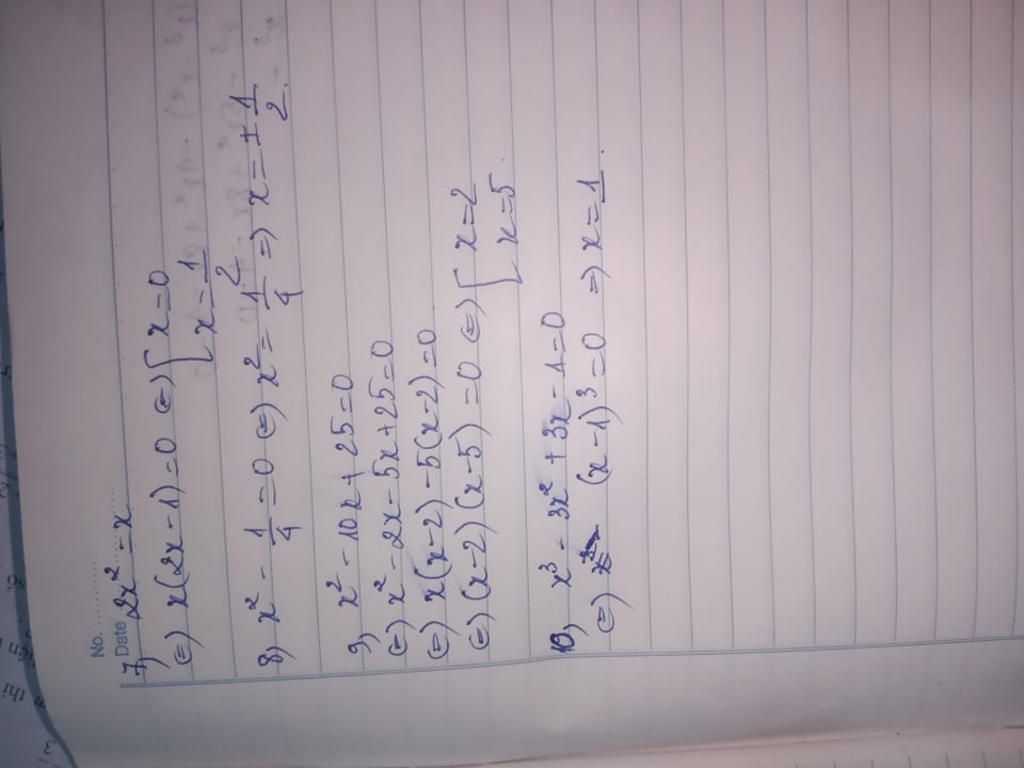 No. ............
Date ............
7) 2x² - x
⇔) x(2x - 1) = 0 ⇔) [ x = 0
[ x = 1/2
8) x² - 1/4 = 0 ⇔) x² = 1/4 => x = ± 1/2.
9) x² - 10x + 25 = 0
⇔) x² - 2x - 5x + 25 = 0
⇔) x(x - 2) - 5(x - 2) = 0
⇔) (x - 2)(x - 5) = 0 ⇔) [ x = 2
[ x = 5.
10) x³ - 3x² + 3x - 1 = 0
⇔) (x - 1)³ = 0 => x = 1.